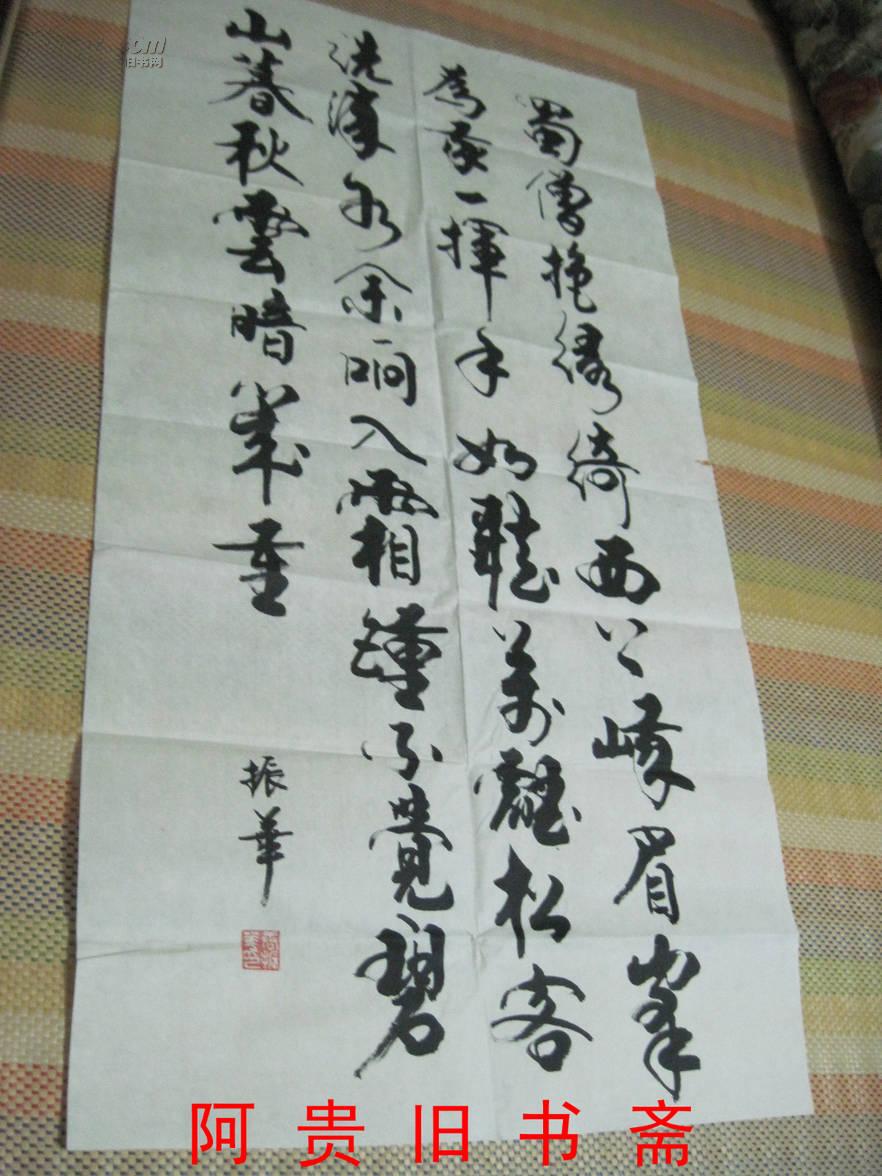 蜀僧抱綠綺西下峨眉峯
為我一揮手如聽萬壑松客
洗流水余响入霜鐘不覺碧
山暮秋雲暗幾重
振華
com
旧书网
阿贵旧书斋